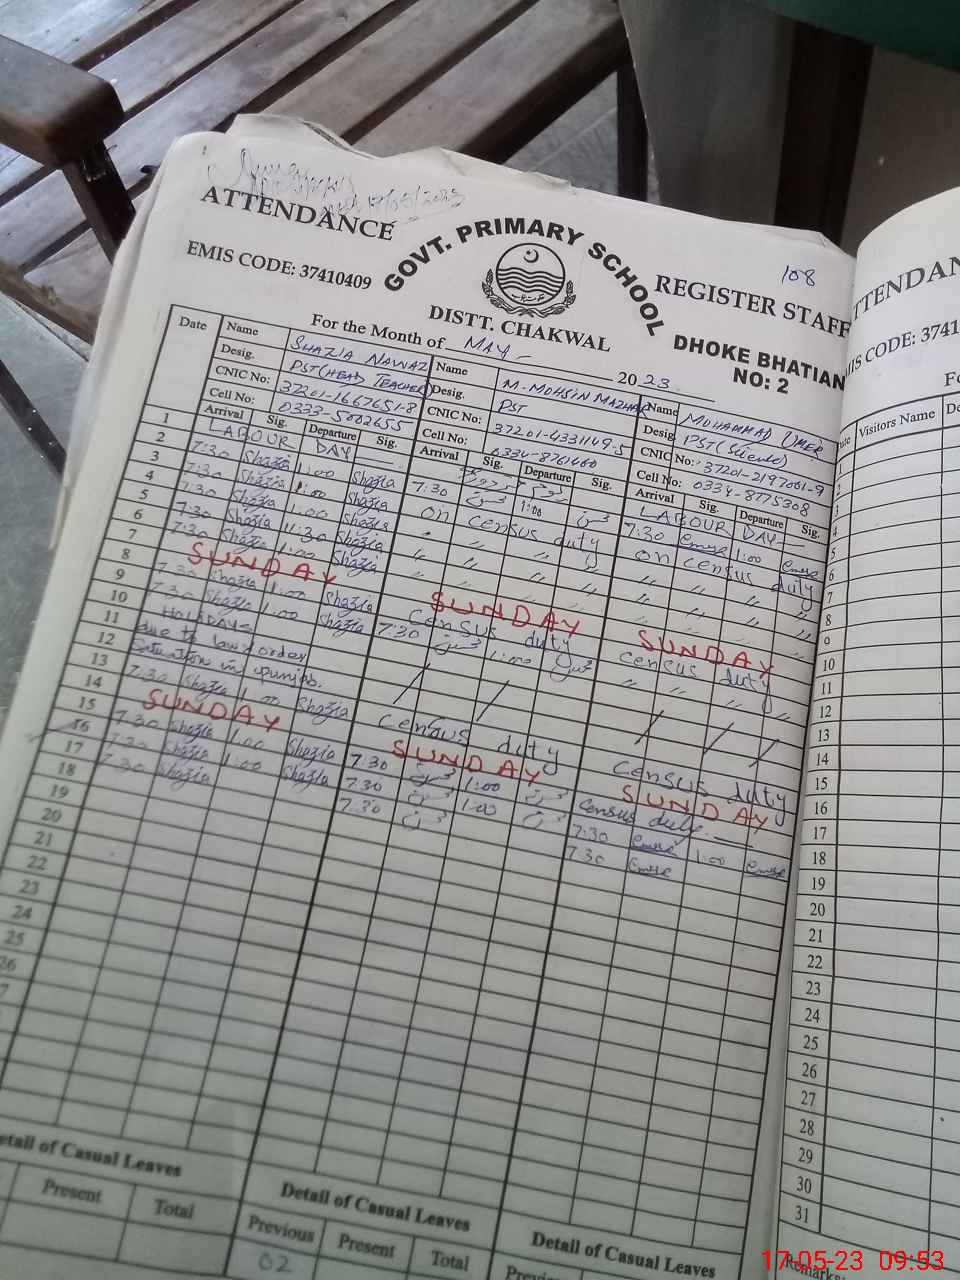 17/05/2023
108
ATTENDANCE
GOVT. PRIMARY SCHOOL
REGISTER STAFF
EMIS CODE: 37410409
DISTT. CHAKWAL
DHOKE BHATIAN
NO: 2
For the Month of MAY - 2023
Date
Name SHAZIA NAWAZ
Desig. PST (HEAD TEACHER)
CNIC No: 37201-1667651-8
Cell No: 0333-5002655
Arrival Sig. Departure Sig.
Name M. MOHSIN MAZHAR
Desig. PST
CNIC No: 37201-4331149-5
Cell No: 0334-8761460
Arrival Sig. Departure Sig.
Name MOHAMMAD UMER
Desig. PST (Science)
CNIC No: 37201-2197061-9
Cell No: 0334-8775308
Arrival Sig. Departure Sig.
1 LABOUR DAY
2 7:30 Shazia 1:00 Shazia
3 7:30 Shazia 1:00 Shazia
4 7:30 Shazia 1:00 Shazia
5 7:30 Shazia 11:30 Shazia
6 7:30 Shazia 1:00 Shazia
7 SUNDAY
8 7:30 Shazia 1:00 Shazia
9 7:30 Shazia 1:00 Shazia
10 HOLIDAYS
11 due to law & order
12 Situation in Punjab.
13 7:30 Shazia 1:00 Shazia
14 SUNDAY
15 7:30 Shazia 1:00 Shazia
16 7:30 Shazia 1:00 Shazia
17 7:30 Shazia
18
19
20
21
22
23
24
25
26
7
7:30 1:00
on census duty
" " " "
" " " "
SUNDAY
Census duty
7:30 1:00
Census duty
SUNDAY
7:30 1:00
7:30 1:00
7:30
LABOUR DAY
7:30 1:00
on census duty
" " " "
" " " "
SUNDAY
census duty
" " " "
census duty
SUNDAY
Census duty
7:30 1:00
7:30
Detail of Casual Leaves
Present Total
Detail of Casual Leaves
Previous Present Total
02
Detail of Casual Leaves
ATTENDAN
MIS CODE: 3741
Fo
Visitors Name De
4
5
6
7
8
9
10
11
12
13
14
15
16
17
18
19
20
21
22
23
24
25
26
27
28
29
30
31
Remarks
17-05-23 09:53